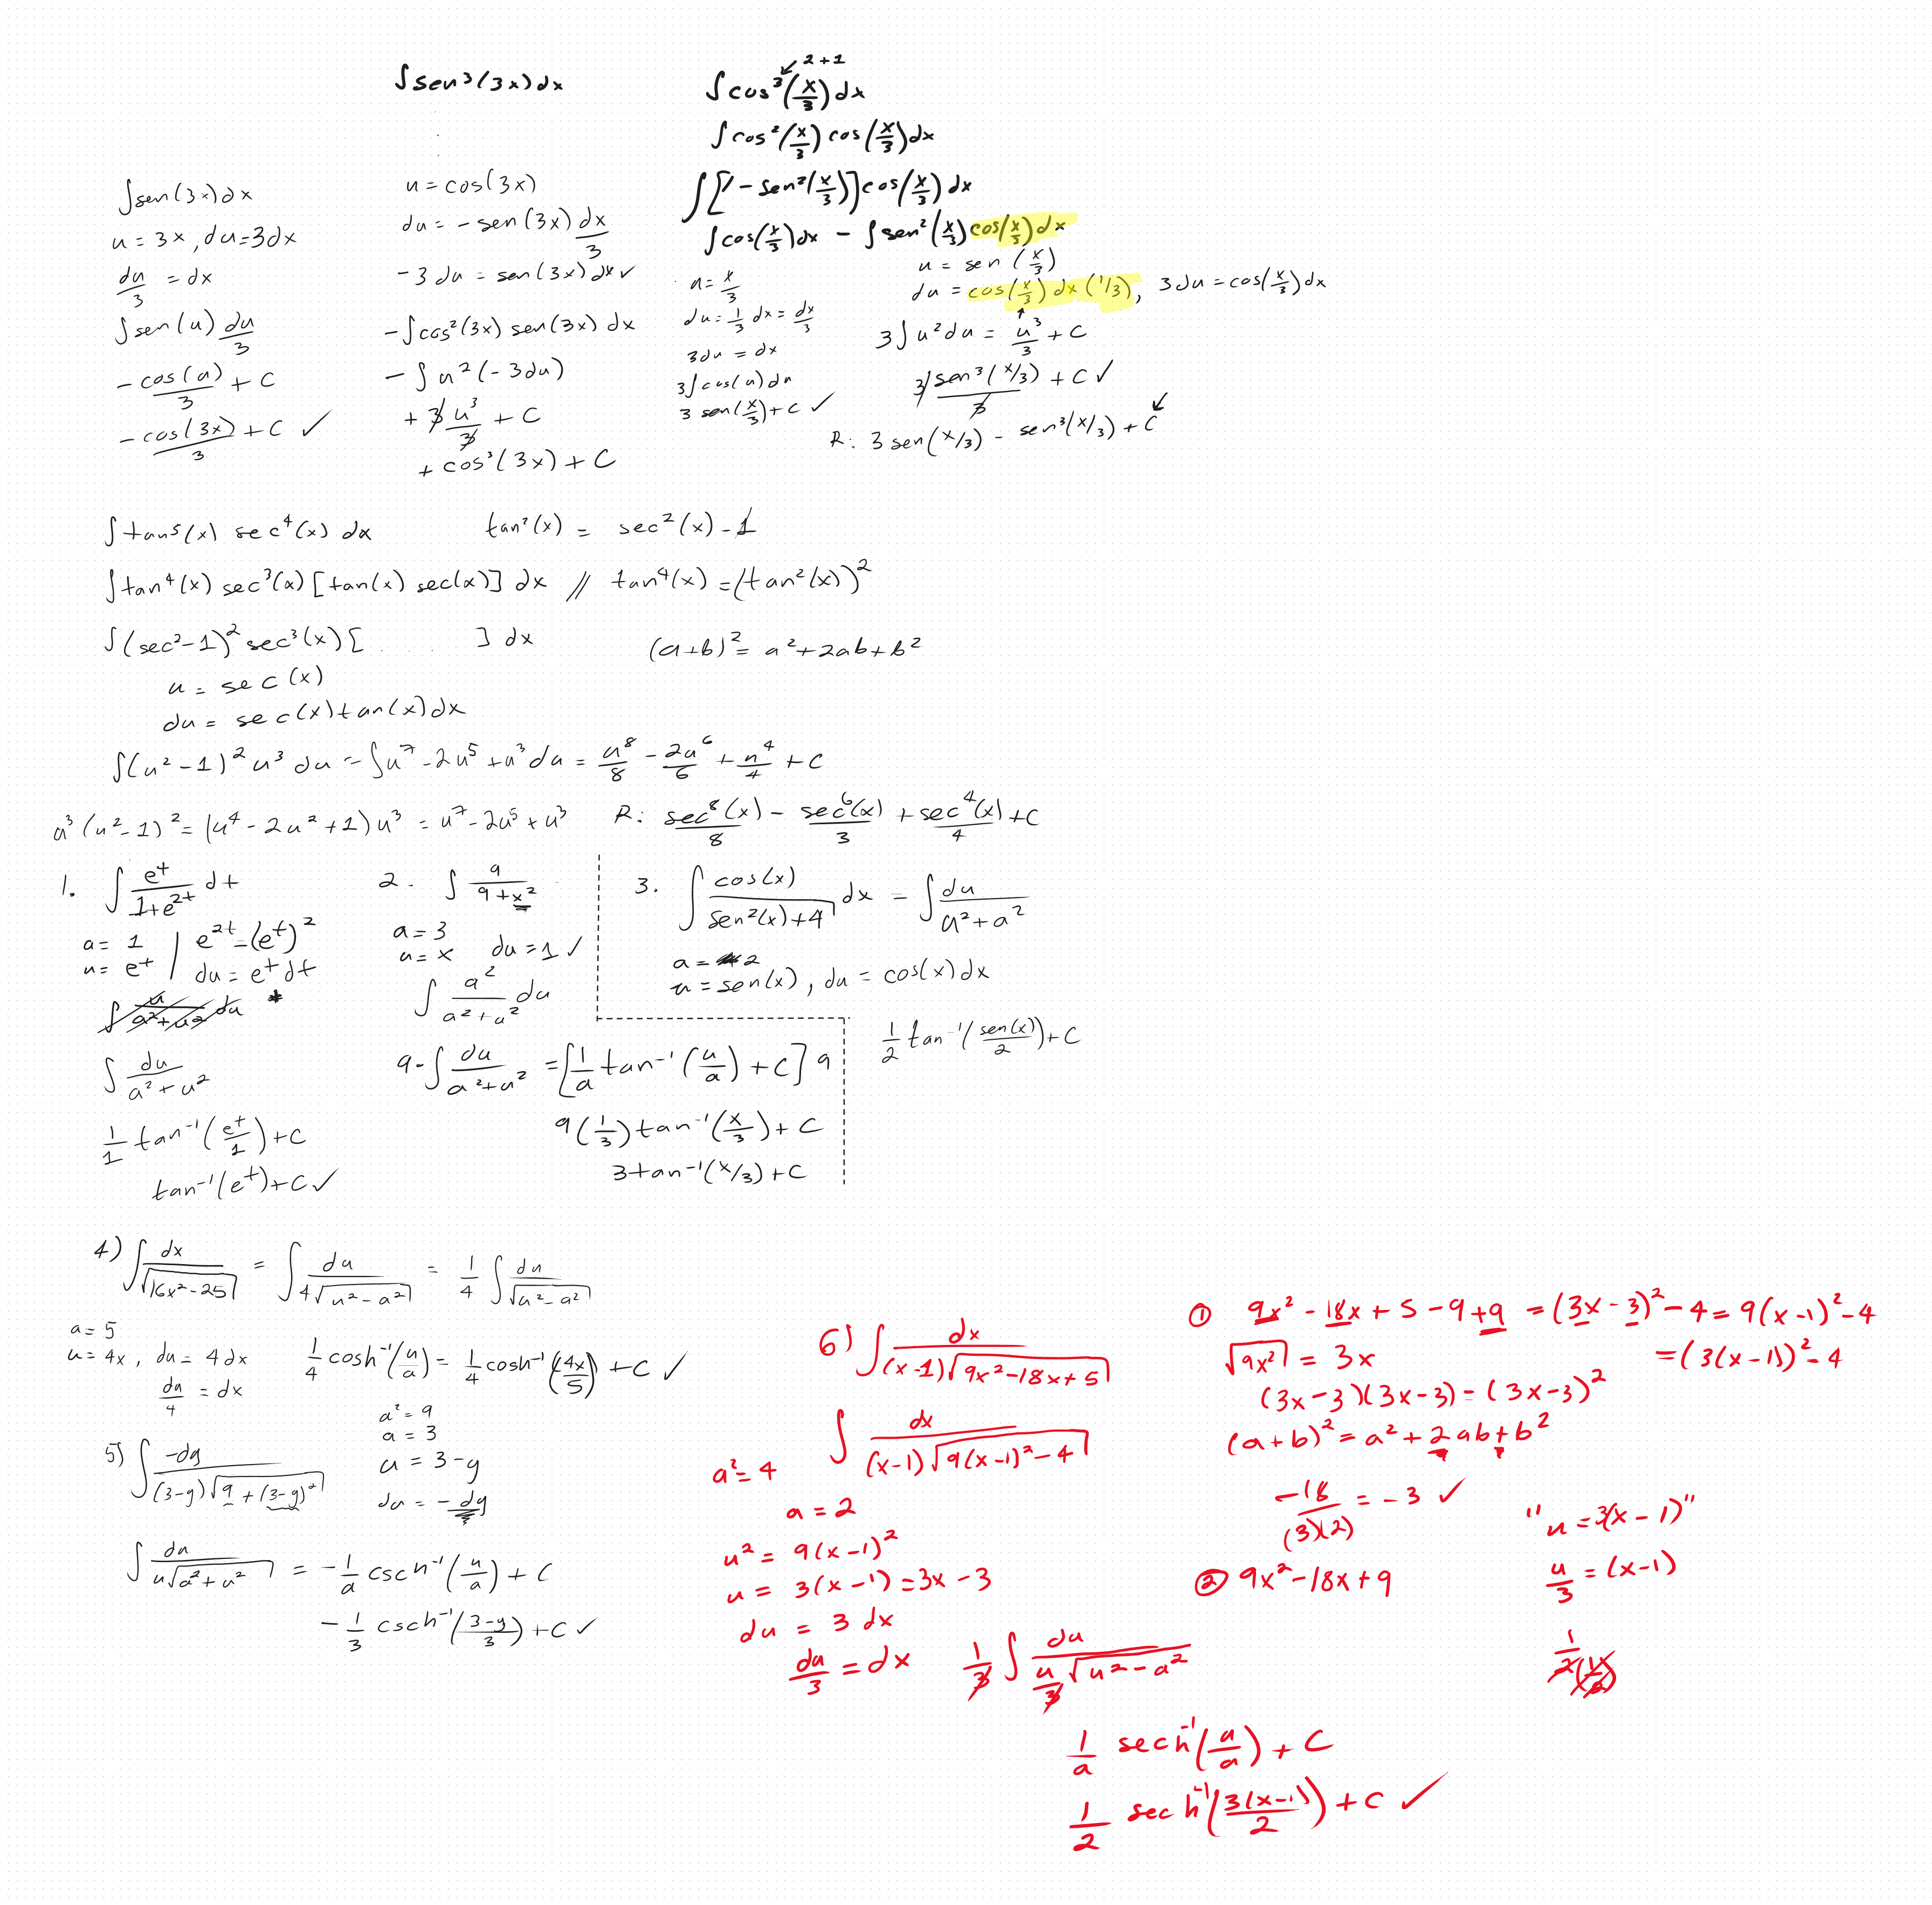 ∫sen³(3x)dx
∫sen(3x)dx
u = 3x, du=3dx
du/3 = dx
∫sen(u) du/3
-cos(u)/3 + C
-cos(3x)/3 + C ✓
u = cos(3x)
du = -sen(3x) dx/3
-3 du = sen(3x) dx ✓
-∫cos²(3x) sen(3x) dx
-∫u²(-3du)
+ 3u³/3 + C
+ cos³(3x) + C
2+1
∫cos³(x/3)dx
∫cos²(x/3) cos(x/3)dx
∫[1 - sen²(x/3)]cos(x/3) dx
∫cos(x/3)dx - ∫sen²(x/3)cos(x/3)dx
u = x/3
du = 1/3 dx = dx/3
3du = dx
3∫cos(u)du
3 sen(x/3)+C ✓
u = sen (x/3)
du = cos(x/3) dx (1/3), 3du = cos(x/3)dx
3∫u²du = u³/3 + C
3 sen³(x/3)/3 + C ✓
R: 3 sen(x/3) - sen³(x/3) + C
∫tan⁵(x) sec⁴(x) dx tan²(x) = sec²(x) - 1
∫tan⁴(x) sec³(x) [tan(x) sec(x)] dx // tan⁴(x) = (tan²(x))²
∫(sec²-1)² sec³(x) [ ] dx (a+b)² = a²+2ab+b²
u = sec(x)
du = sec(x)tan(x)dx
∫(u²-1)² u³ du = ∫u⁷-2u⁵+u³du = u⁸/8 - 2u⁶/6 + u⁴/4 + C
u³(u²-1)² = (u⁴-2u²+1)u³ = u⁷-2u⁵+u³ R: sec⁸(x)/8 - sec⁶(x)/3 + sec⁴(x)/4 + C
1. ∫ e^t/(1+e^2t) dt
a = 1 | e^2t = (e^t)²
u = e^t | du = e^t dt
∫ u/(a²+u²) du *
∫ du/(a²+u²)
1/1 tan⁻¹(e^t/1)+C
tan⁻¹(e^t)+C ✓
2. ∫ 9/(9+x²)
a = 3
u = x du = 1 ✓
∫ a²/(a²+u²) du
9·∫ du/(a²+u²) = [1/a tan⁻¹(u/a) + C] 9
9(1/3)tan⁻¹(x/3) + C
3tan⁻¹(x/3)+C
3. ∫ cos(x)/(sen²(x)+4) dx = ∫ du/(u²+a²)
a = 2
u = sen(x), du = cos(x)dx
1/2 tan⁻¹(sen(x)/2)+C
4) ∫ dx/√(16x²-25) = ∫ du/(4√(u²-a²)) = 1/4 ∫ du/√(u²-a²)
a = 5
u = 4x, du = 4dx
du/4 = dx
1/4 cosh⁻¹(u/a) = 1/4 cosh⁻¹(4x/5) + C ✓
5) ∫ -dy/((3-y)√(9+(3-y)²))
a² = 9
a = 3
u = 3-y
du = -dy
∫ du/(u√(a²+u²)) = -1/a csch⁻¹(u/a) + C
-1/3 csch⁻¹((3-y)/3) + C ✓
6) ∫ dx/((x-1)√(9x²-18x+5))
∫ dx/((x-1)√(9(x-1)²-4))
a² = 4
a = 2
u² = 9(x-1)²
u = 3(x-1) = 3x-3
du = 3 dx
du/3 = dx
1/3 ∫ du/(u/3 √(u²-a²))
1/a sech⁻¹(u/a) + C
1/2 sech⁻¹(3(x-1)/2) + C ✓
① 9x² - 18x + 5 - 9 + 9 = (3x-3)² - 4 = 9(x-1)² - 4
√9x² = 3x = (3(x-1))² - 4
(3x-3)(3x-3) = (3x-3)²
(a+b)² = a² + 2ab + b²
-18/(3)(2) = -3 ✓
② 9x²-18x+9
"u = 3(x-1)"
u/3 = (x-1)